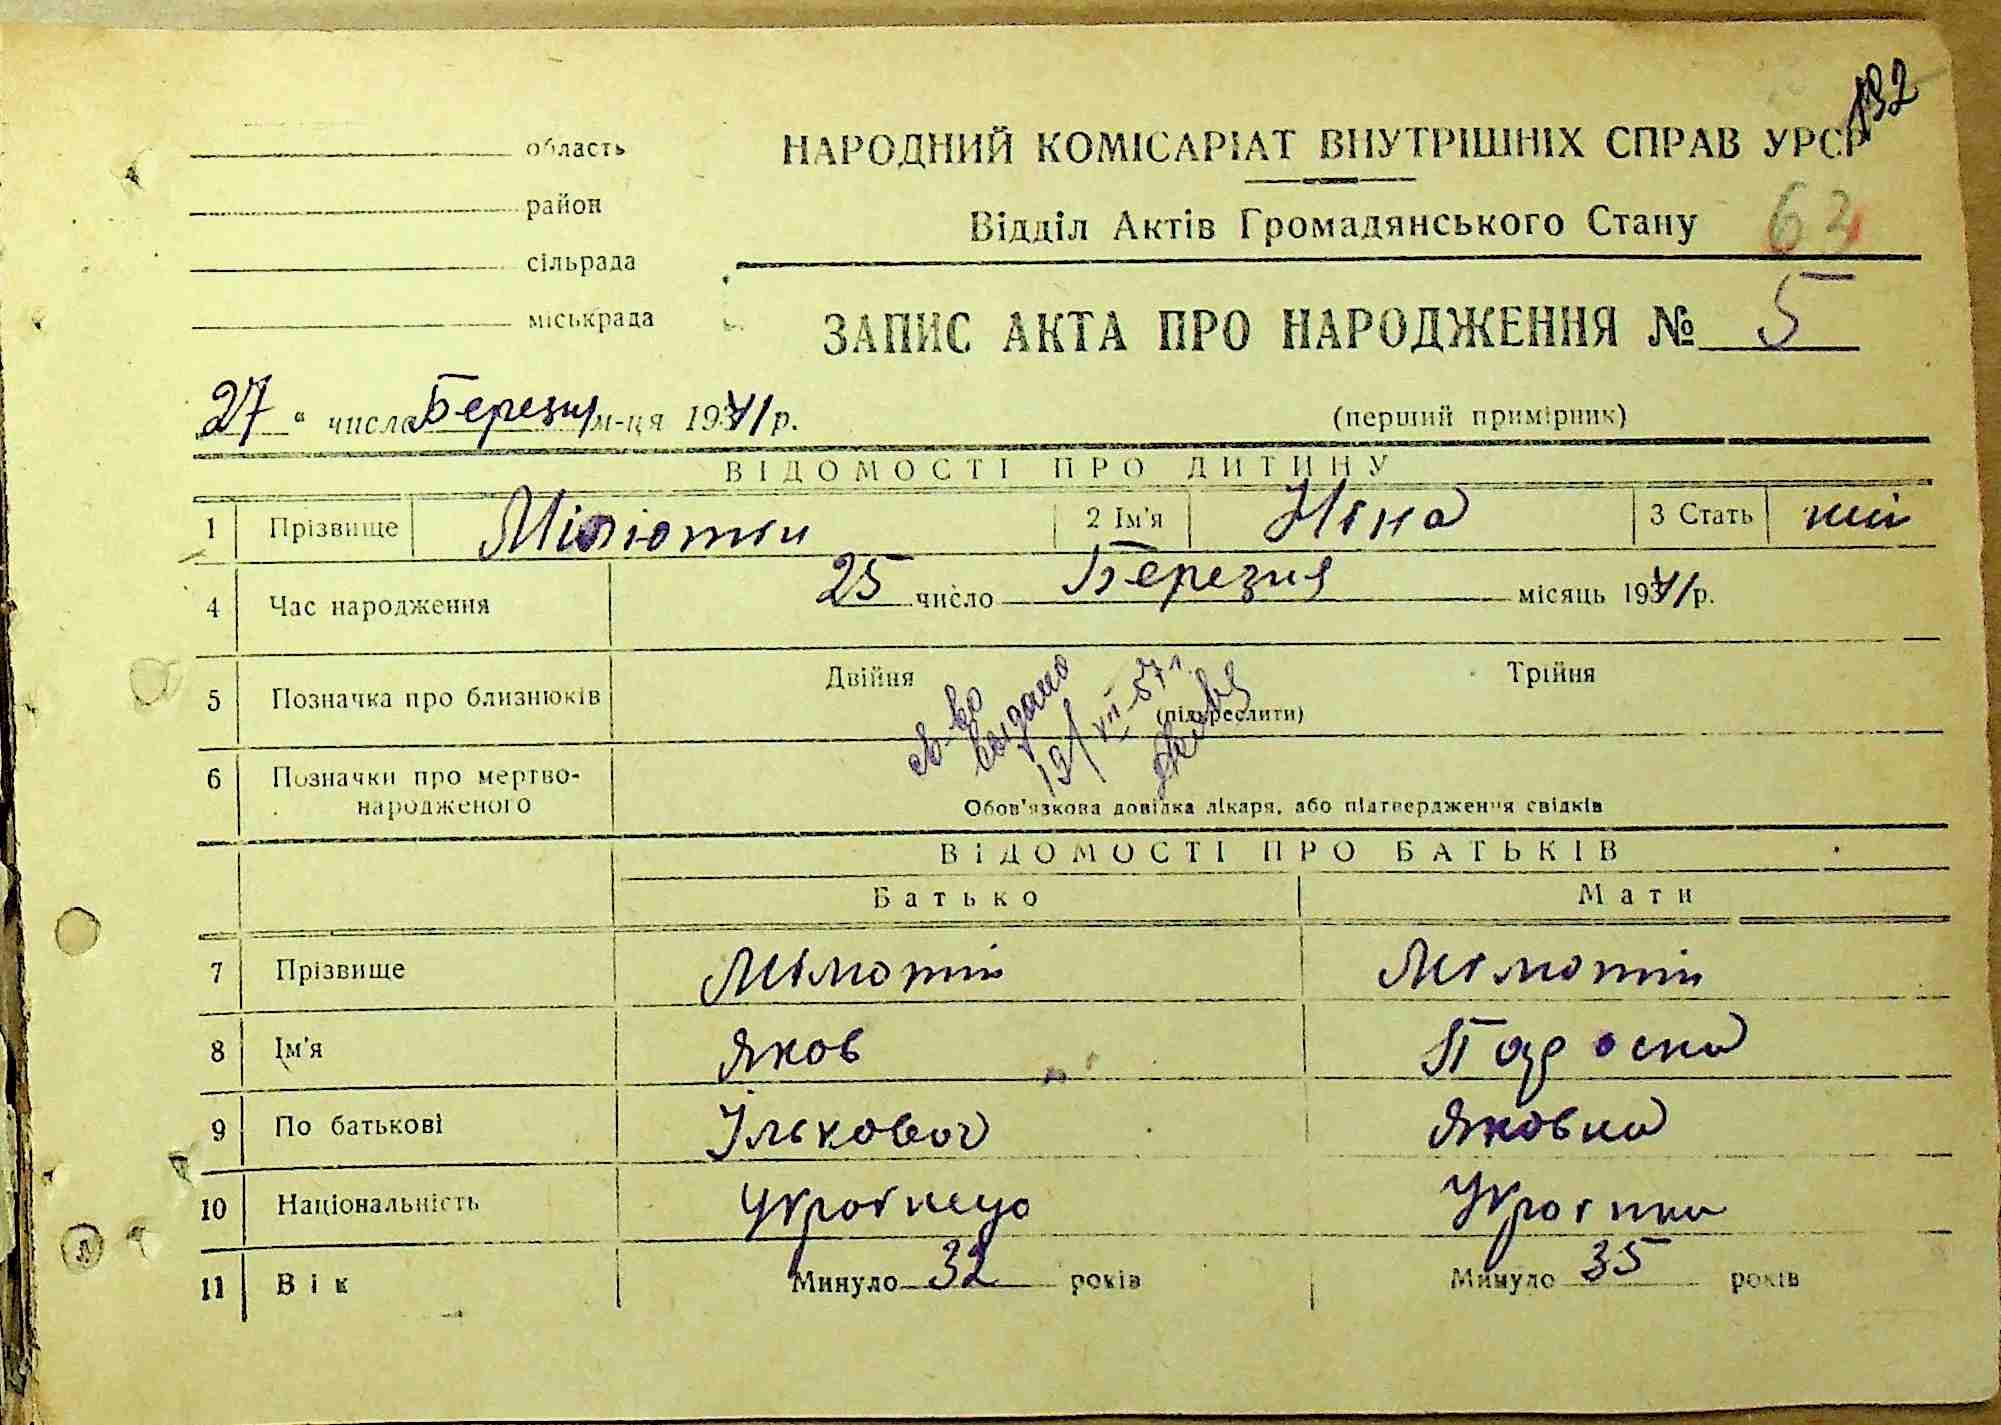 132
область
НАРОДНИЙ КОМІСАРІАТ ВНУТРІШНІХ СПРАВ УРСР
район
Відділ Актів Громадянського Стану 63
сільрада
міськрада
ЗАПИС АКТА ПРО НАРОДЖЕННЯ № 5
27 " числа Березня м-ця 1941 р.
(перший примірник)
ВІДОМОСТІ ПРО ДИТИНУ
1 Прізвище Мілютин 2 Ім'я Ніна 3 Стать жін
4 Час народження 25 число Березня місяць 1941 р.
5 Позначка про близнюків Двійня Трійня
(підкреслити)
св-во
видано
12/VII-57 г.
6 Позначки про мертво-
народженого
Обов'язкова довідка лікаря, або підтвердження свідків
ВІДОМОСТІ ПРО БАТЬКІВ
Батько Мати
7 Прізвище Мілютін Мілютін
8 Ім'я Яков Параска
9 По батькові Ількович Яковна
10 Національність Українець Українка
11 Вік Минуло 32 років Минуло 35 років